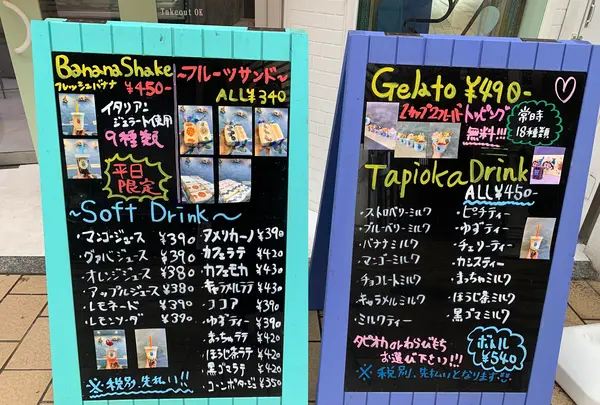 Takeout OK
BananaShake
フレッシュバナナ ¥450-
イタリアン
ジェラート使用
9種類
平日
限定
~フルーツサンド~
ALL ¥340
~Soft Drink~
・マンゴージュース ¥390
・グァバジュース ¥390
・オレンジジュース ¥380
・アップルジュース ¥380
・レモネード ¥390
・レモンソーダ ¥390
・アメリカーノ ¥390
・カフェラテ ¥420
・カフェモカ ¥430
・キャラメルラテ ¥430
・ココア ¥390
・ゆずティー ¥390
・まっちゃラテ ¥420
・ほうじ茶ラテ ¥420
・黒ゴマラテ ¥420
・コーンポタージュ ¥350
※税別、先払い!!
Gelato ¥490-
1カップ2フレーバー トッピング
無料!!!
常時
18種類
Tapioka Drink
ALL ¥450-
・ストロベリーミルク
・ブルーベリーミルク
・バナナミルク
・マンゴーミルク
・チョコレートミルク
・キャラメルミルク
・ミルクティー
・ピーチティー
・ゆずティー
・チェリーティー
・カシスティー
・まっちゃミルク
・ほうじ茶ミルク
・黒ゴマミルク
タピオカorわらびもち
お選び下さい!!!
ボトル
¥540
※税別、先払いとなります